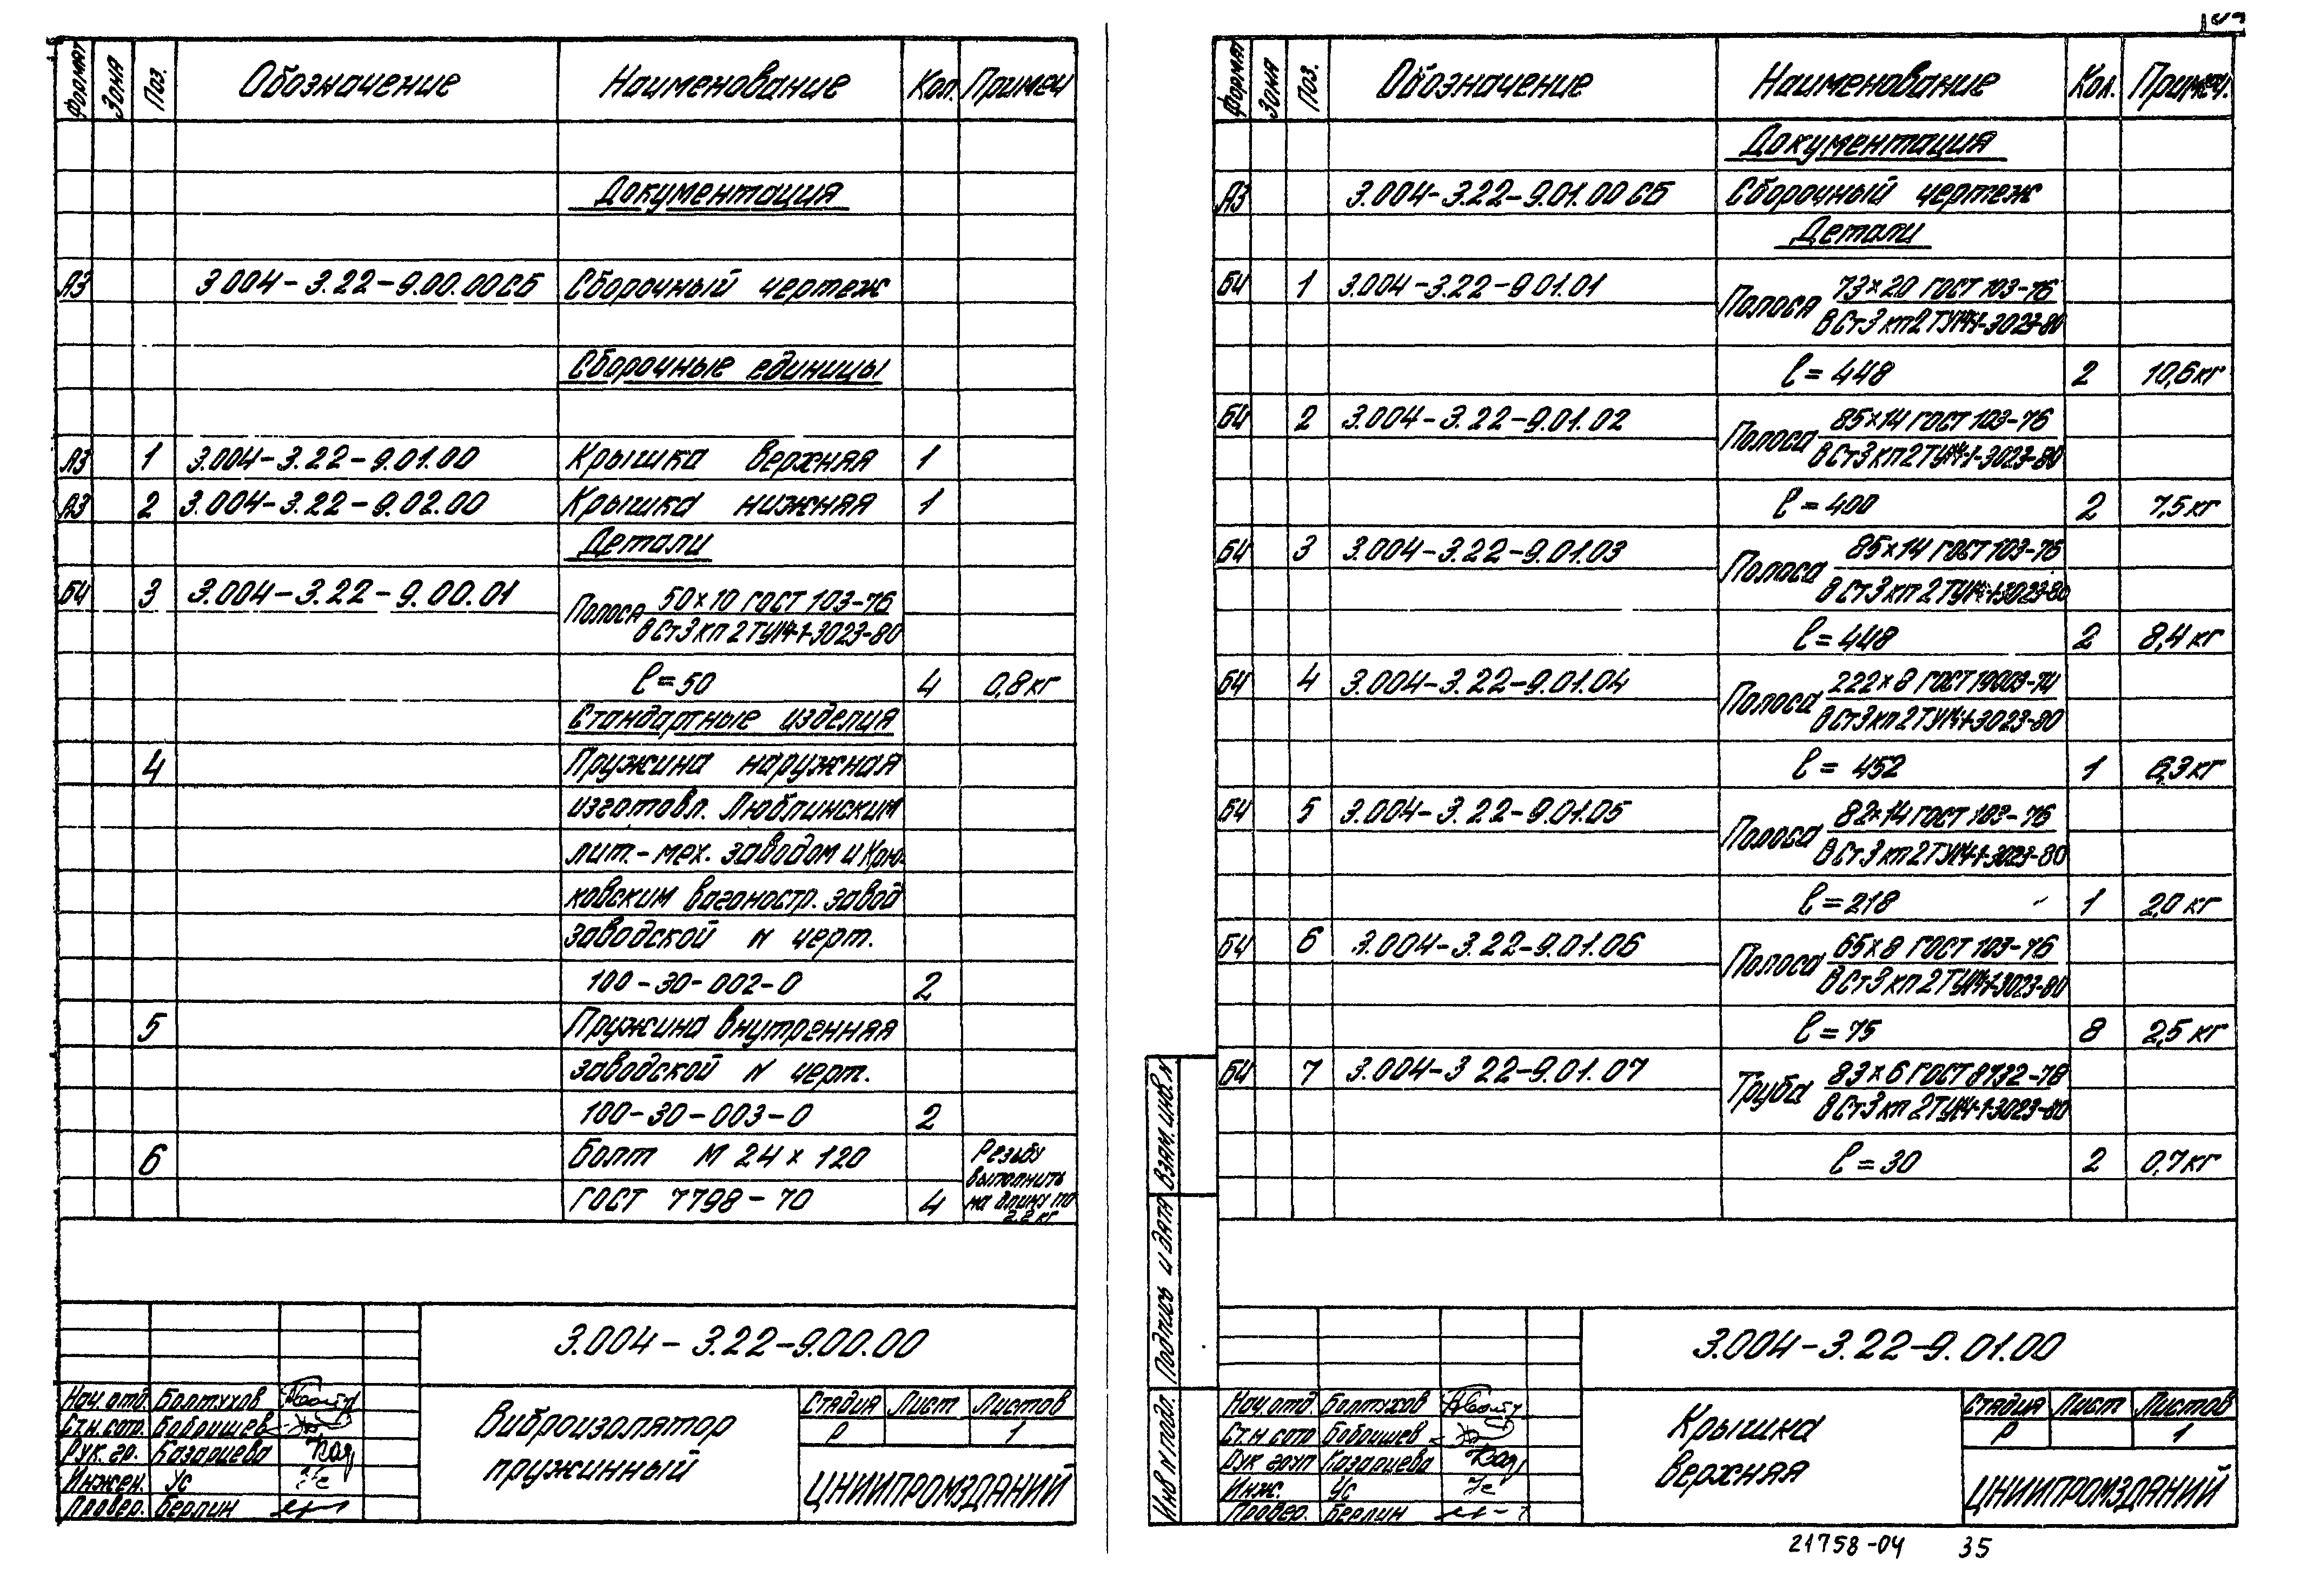 Формат Зона Поз. Обозначение Наименование Кол. Примеч
Документация
А3 3.004-3.22-9.00.00СБ Сборочный чертеж
Сборочные единицы
А3 1 3.004-3.22-9.01.00 Крышка верхняя 1
А3 2 3.004-3.22-9.02.00 Крышка нижняя 1
Детали
БЧ 3 3.004-3.22-9.00.01 Полоса 50×10 ГОСТ 103-76
ВСт3кп2ТУ14-1-3023-80
ℓ=50 4 0,8кг
Стандартные изделия
4 Пружина наружная
изготовл. Люблинским
лит.-мех. заводом и Крю-
ковским вагоностр. завод
заводской N черт.
100-30-002-0 2
5 Пружина внутренняя
заводской N черт.
100-30-003-0 2
6 Болт М 24×120 Резьбу
выполнить
ГОСТ 7798-70 4 на длину 110
2.2 кг
3.004-3.22-9.00.00
Нач. отд. Болтухов
Ст.н.сотр. Бобришев
Рук. гр. Казарцева
Инжен. Ус
Провер. Берлин
Виброизолятор
пружинный
Стадия Лист Листов
Р 1
ЦНИИПРОМЗДАНИЙ
Формат Зона Поз. Обозначение Наименование Кол. Примеч.
Документация
А3 3.004-3.22-9.01.00СБ Сборочный чертеж
Детали
БЧ 1 3.004-3.22-9.01.01 Полоса 73×20 ГОСТ 103-76
ВСт3кп2ТУ14-1-3023-80
ℓ=448 2 10,6кг
БЧ 2 3.004-3.22-9.01.02 Полоса 85×14 ГОСТ 103-76
ВСт3кп2ТУ14-1-3023-80
ℓ=400 2 7,5кг
БЧ 3 3.004-3.22-9.01.03 Полоса 85×14 ГОСТ 103-76
ВСт3кп2ТУ14-1-3023-80
ℓ=448 2 8,4кг
БЧ 4 3.004-3.22-9.01.04 Полоса 222×8 ГОСТ 19903-74
ВСт3кп2ТУ14-1-3023-80
ℓ=452 1 6,3кг
БЧ 5 3.004-3.22-9.01.05 Полоса 82×14 ГОСТ 103-76
ВСт3кп2ТУ14-1-3023-80
ℓ=218 1 2,0 кг
БЧ 6 3.004-3.22-9.01.06 Полоса 65×8 ГОСТ 103-76
ВСт3кп2ТУ14-1-3023-80
ℓ=75 8 2,5 кг
БЧ 7 3.004-3 22-9.01.07 Труба 83×6 ГОСТ 8732-78
ВСт3кп2ТУ14-1-3023-80
ℓ=30 2 0,7кг
Взам. инв. N
Подпись и дата
Инв N подл.
3.004-3.22-9.01.00
Нач.отд. Болтухов
Ст.н сотр Бобришев
Рук груп Казарцева
Инж. Ус
Провер. Берлин
Крышка
верхняя
Стадия Лист Листов
Р 1
ЦНИИПРОМЗДАНИЙ
21758-04 35